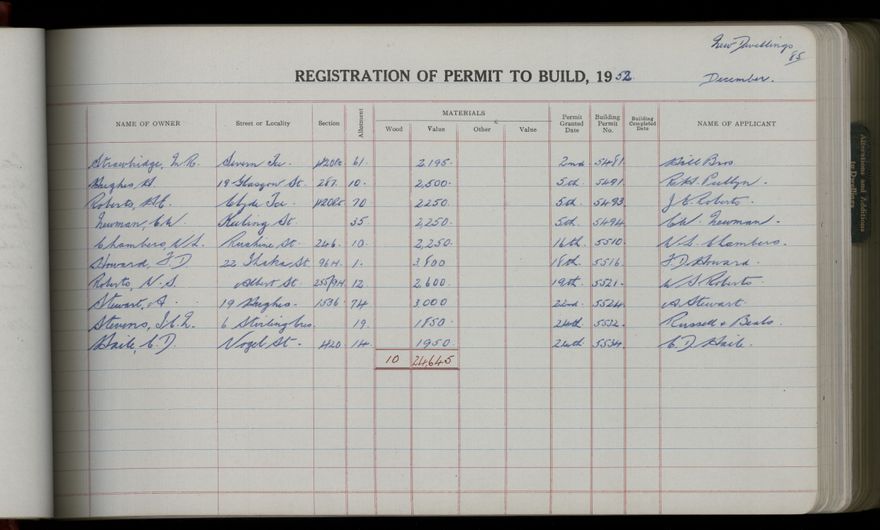 New Dwellings
85
REGISTRATION OF PERMIT TO BUILD, 1952
December.
NAME OF OWNER Street or Locality Section Allotment MATERIALS Wood Value Other Value Permit Granted Date Building Permit No. Building Completed Date NAME OF APPLICANT
Strawbridge, Severn Tce. 61. 2,195. 2nd 5481 Hill Bros
Hughes, H. 19 Glasgow St. 287. 10. 2,500. 5th 5491
Roberts, Clyde Tce. 70 2250. 5th 5493 J E Roberts.
Newman, C.W. Keeling St. 35 2,250. 5th 5494 C.W. Newman.
Chambers, N.L. Ruahine St. 246. 10. 2,250. 16th 5510. N.L. Chambers.
Howard, F.D. 22 Ihaka St. 1. 3,800 18th 5516. F.D. Howard.
Roberts, N.S. Albert St. 12. 2,600. 19th 5521. Roberts.
Stewart, A. 19 Hughes. 1536. 74 3000 22nd 5524. A Stewart.
Stevens, 6 Stirling Cres. 19. 1850. 24th 5532. Russell & Beale.
Haile, C.D. Vogel St. 420 14. 1950. 24th 5534. C.D. Haile.
10 24,645
Alterations and Additions to Dwellings